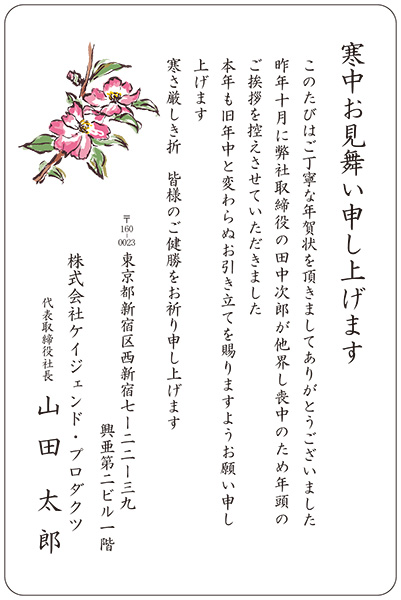 寒中お見舞い申し上げます
このたびはご丁寧な年賀状を頂きましてありがとうございました
昨年十月に弊社取締役の田中次郎が他界し喪中のため年頭の
ご挨拶を控えさせていただきました
本年も旧年中と変わらぬお引き立てを賜りますようお願い申し
上げます
寒さ厳しき折　皆様のご健勝をお祈り申し上げます
〒160-0023
東京都新宿区西新宿七ー二二ー三九
興亜第二ビル一階
株式会社ケイジェンド・プロダクツ
代表取締役社長　山田太郎